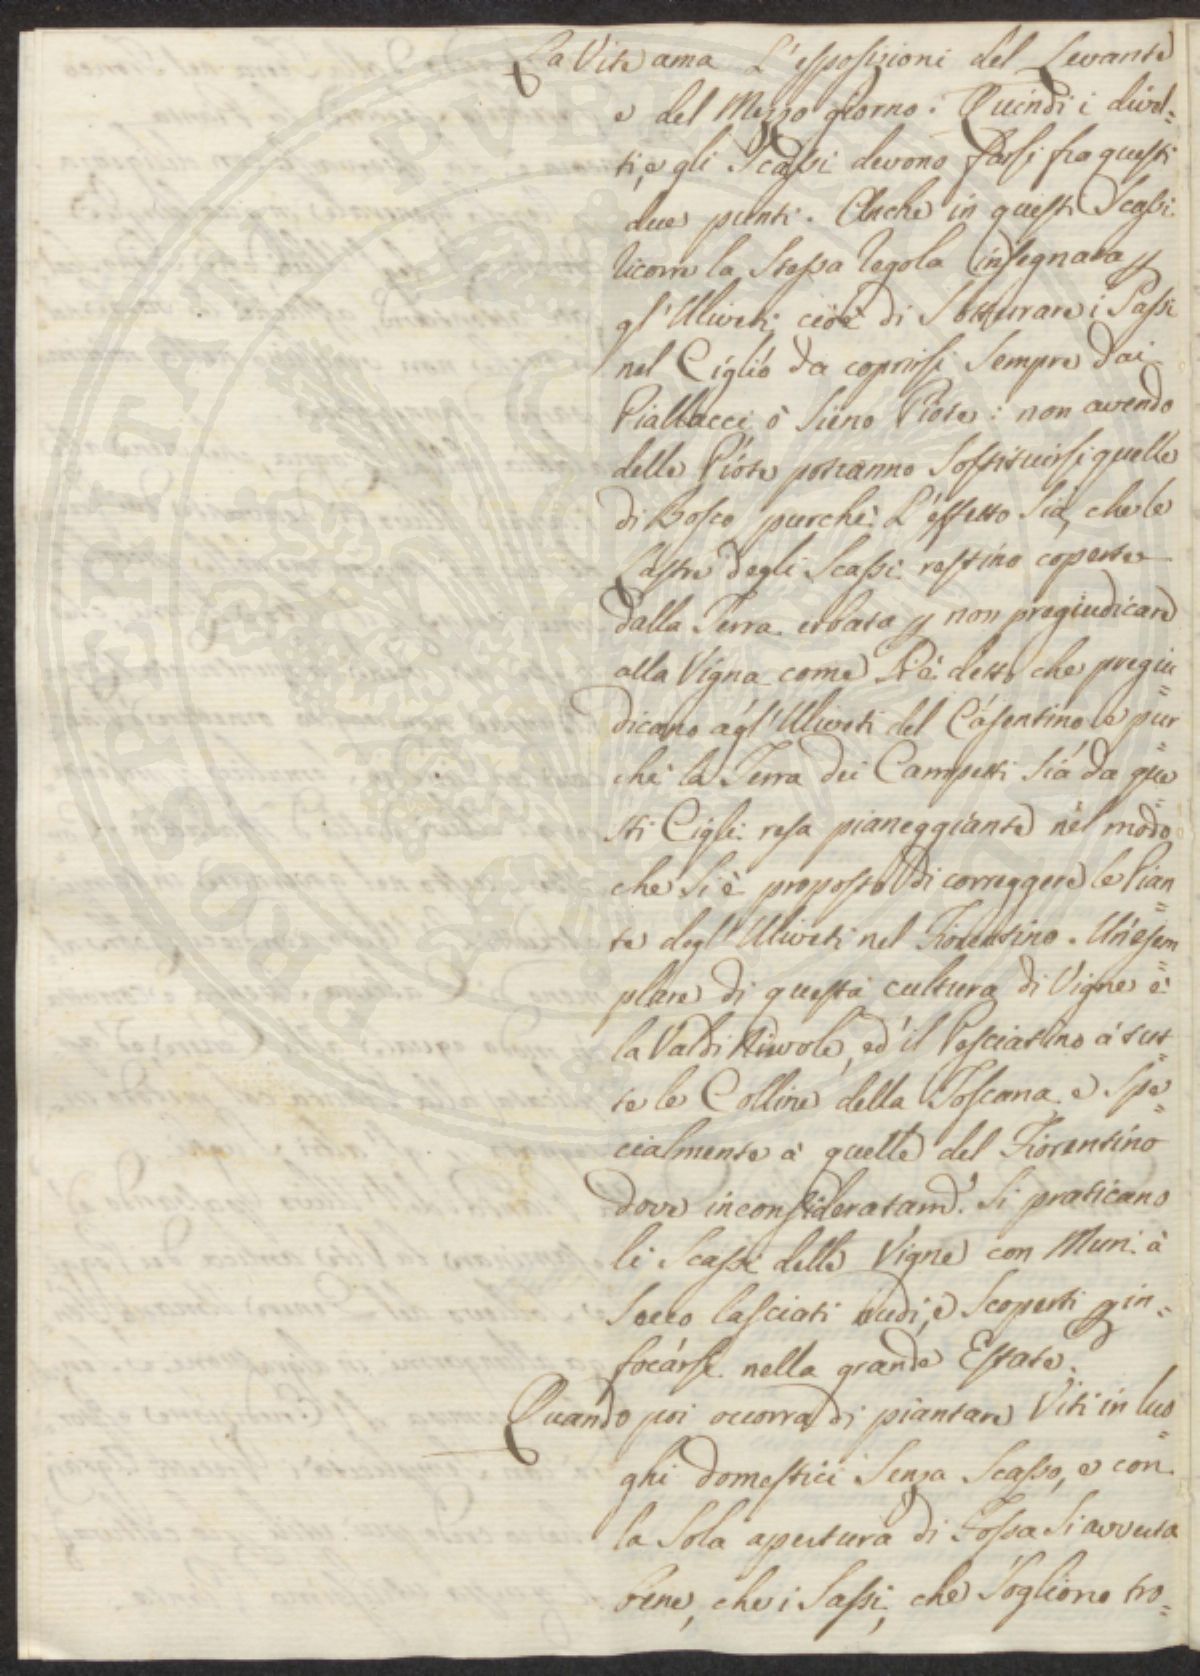 La Vite ama L'esposizioni del Levante
e del Mezzo giorno: Quindi i divel=
ti, e gli Scassi devono farsi fra questi
due punti. Anche in questi Scassi
ricorre la Stessa regola insegnata p
gl'Uliveti, cioè di Sotturare i Sassi
nel Ciglio da coprirsi Sempre dai
Piallacci ò Sieno Piote: non avendo
delle Piote potranno Sostituirsi quelle
di Bosco purchè L'effetto Sia, che le
Lastre degli Scassi restino coperte
dalla Terra erbata p non pregiudicare
alla Vigna come Si è detto che pregiu=
dicano agl'Uliveti del Casentino e pur
chè la Terra dei Campetti Sia da que=
sti Cigli resa pianeggiante nel modo
che Si è proposto di correggere le Pian=
te degl'Uliveti nel Fiorentino. Un'esem=
plare di questa cultura di Vigne è
la Valdi Nievole, ed il Pesciatino à tut=
te le Colline della Toscana, e Spe=
cialmente à quelle del Fiorentino
dove inconsideratam. Si praticano
li Scassi delle Vigne con Muri à
Secco lasciati nudi, e Scoperti p in=
focarsi nella grande Estate.
Quando poi occorra di piantare Viti in luo=
ghi domestici Senza Scasso, e con
la Sola apertura di Fossa Si avverta
bene, che i Sassi, che Sogliono tro=
PROSPERITATI PUBLICAE